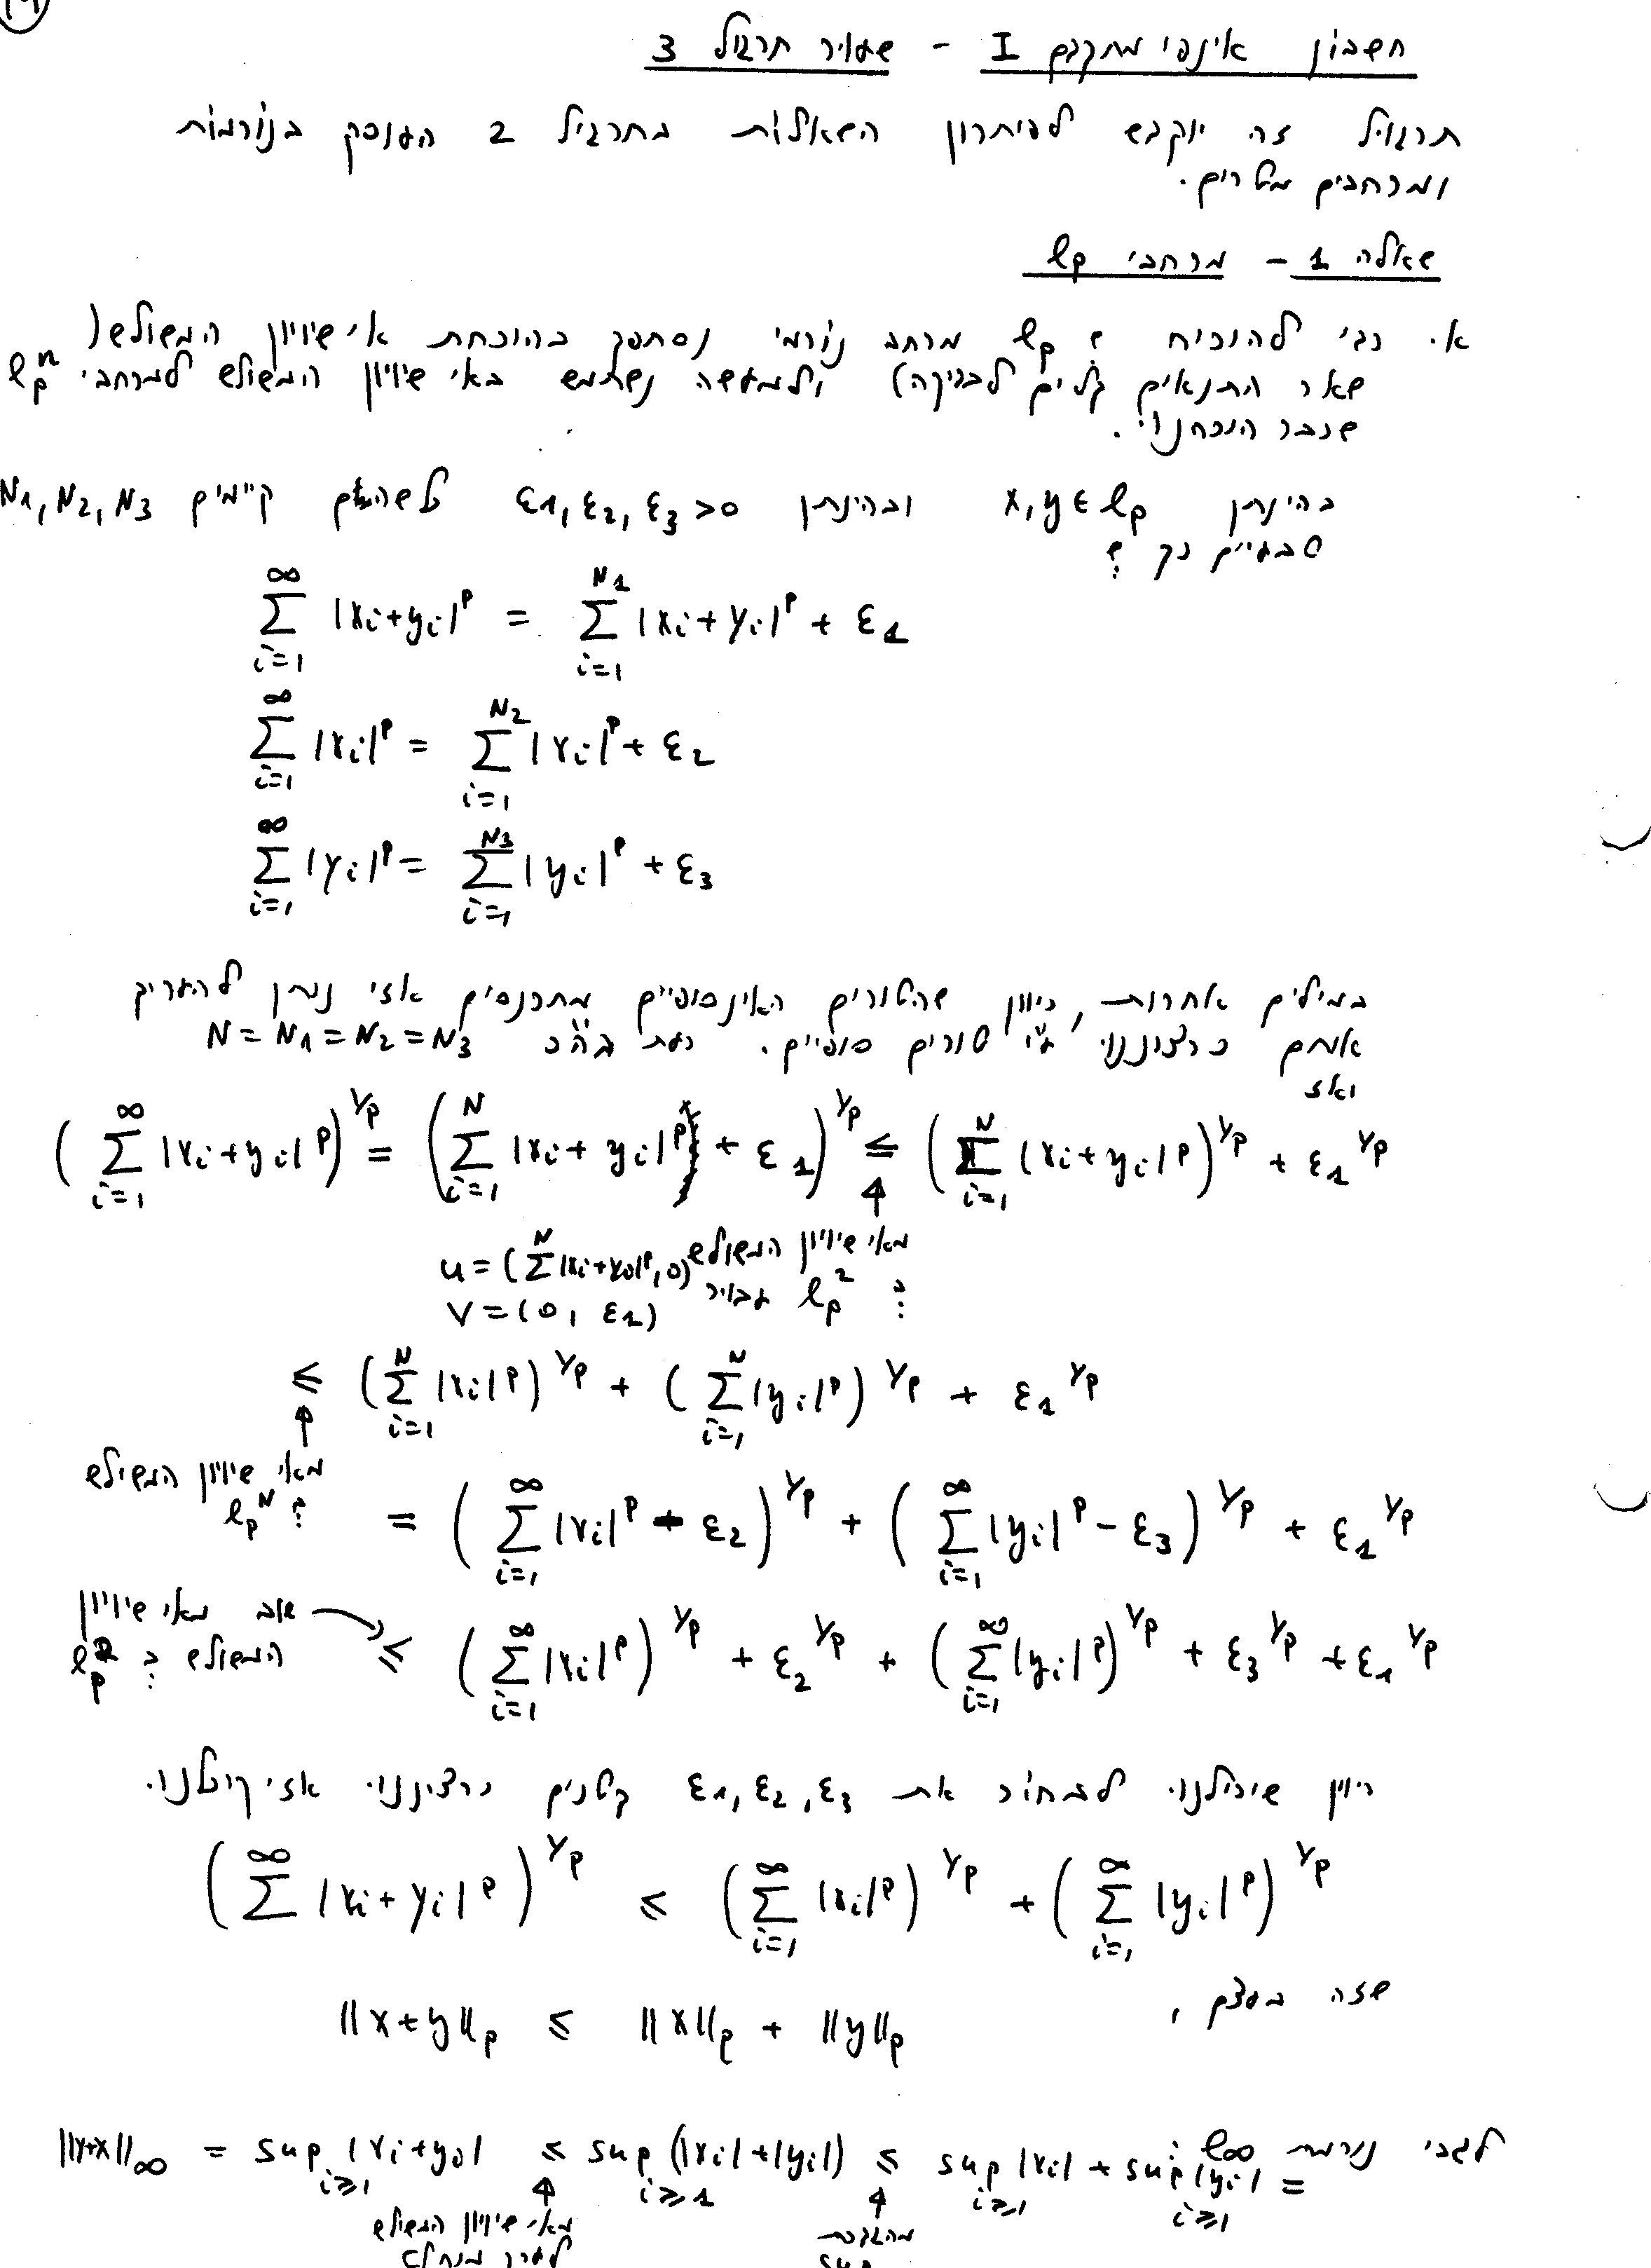 חשבון אינפי מתקדם I - שעור תרגול 3
תרגול זה יוקדש לפיתרון השאלות בתרגיל 2 העוסק בנורמות
ומרחבים מטרים.
שאלה 1 - מרחבי lp
א. כדי להוכיח ש lp מרחב נורמי נסתפק בהוכחת אי שיוויון המשולש (
שאר התנאים קלים לבדיקה) ולמעשה נשתמש באי שיוויון המשולש למרחבי l_p^n
שכבר הוכחנו.
בהינתן x,y ∈ lp ובהינתן ε1, ε2, ε3 >0 כלשהם קיימים N1, N2, N3
טבעיים כך ש:
∑_{i=1}^{∞} |xi+yi|^p = ∑_{i=1}^{N1} |xi+yi|^p + ε1
∑_{i=1}^{∞} |xi|^p = ∑_{i=1}^{N2} |xi|^p + ε2
∑_{i=1}^{∞} |yi|^p = ∑_{i=1}^{N3} |yi|^p + ε3
במילים אחרות, כיוון שהטורים האינסופיים מתכנסים אזי ניתן להעריך
אותם כרצוננו ע"י טורים סופיים. כעת בה"כ N = N1 = N2 = N3
ואז
(∑_{i=1}^{∞} |xi+yi|^p)^{1/p} = (∑_{i=1}^{N} |xi+yi|^p + ε1)^{1/p} ≤ (∑_{i=1}^{N} |xi+yi|^p)^{1/p} + ε1^{1/p}
מאי שיוויון המשולש
ב: l_p^2 עבור u = (∑^{N} |xi+yi|^p, 0)
v = (0, ε1)
≤ (∑_{i=1}^{N} |xi|^p)^{1/p} + (∑_{i=1}^{N} |yi|^p)^{1/p} + ε1^{1/p}
מאי שיוויון המשולש
ב: l_p^N
= (∑_{i=1}^{∞} |xi|^p - ε2)^{1/p} + (∑_{i=1}^{∞} |yi|^p - ε3)^{1/p} + ε1^{1/p}
שוב מאי שיוויון
המשולש ב: l_p^2
≤ (∑_{i=1}^{∞} |xi|^p)^{1/p} + ε2^{1/p} + (∑_{i=1}^{∞} |yi|^p)^{1/p} + ε3^{1/p} + ε1^{1/p}
כיוון שיכולנו לבחור את ε1, ε2, ε3 קטנים כרצוננו אזי קיבלנו.
(∑_{i=1}^{∞} |xi+yi|^p)^{1/p} ≤ (∑_{i=1}^{∞} |xi|^p)^{1/p} + (∑_{i=1}^{∞} |yi|^p)^{1/p}
שזה בעצם,
||x+y||p ≤ ||x||p + ||y||p
לגבי נורמת l∞:
||y+x||∞ = sup_{i≥1} |xi+yi| ≤ sup_{i≥1} (|xi|+|yi|) ≤ sup_{i≥1} |xi| + sup_{i≥1} |yi| =
מאי שיוויון המשולש
לערך מוחלט
מהגדרת
sup